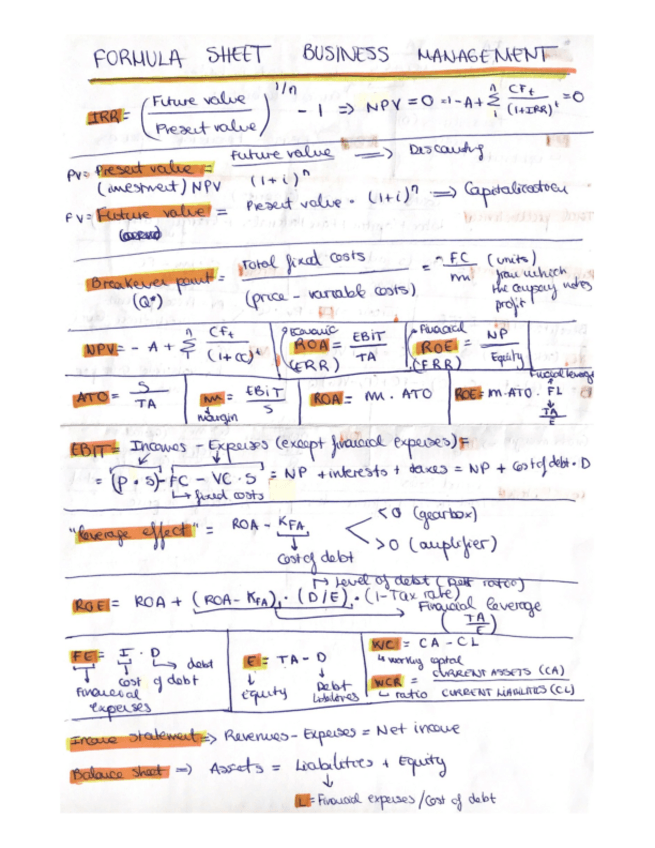 FORMULA SHEET BUSINESS MANAGEMENT
IRR = (Future value / Present value)^1/n - 1 => NPV = 0 = 1 - A + Σ CFt / (1+IRR)^t = 0
PV = Present value = Future value / (1+i)^n => Discounting
(investment) NPV
FV = Future value = Present value · (1+i)^n => Capitalication
Breakeven point = Total fixed costs / (price - variable costs) = FC / m (units)
(Q*) from which
the company
profit
NPV = - A + Σ CFt / (1+α)^t
Economic ROA = EBIT / TA
(ERR)
Financial ROE = NP / Equity
(FRR)
ATO = S / TA
m = EBIT / S
margin
ROA = m · ATO
ROE = m · ATO · FL
Financial leverage
TA / E
EBIT = Incomes - Expenses (except financial expenses) =
= (p · s) - FC - VC · S = NP + interests + taxes = NP + cost of debt · D
fixed costs
"leverage effect" = ROA - KFA <0 (gearbox)
>0 (amplifier)
cost of debt
Level of debt (Debt ratio)
ROE = ROA + (ROA - KFA) · (D/E) · (1 - Tax rate)
Financial leverage
(TA / E)
FE = I · D
debt
cost of debt
Financial
expenses
E = TA - D
equity Debt
liabilities
WC = CA - CL
working capital
WCR = CURRENT ASSETS (CA) / CURRENT LIABILITIES (CL)
ratio
Income statement => Revenues - Expenses = Net income
Balance sheet => Assets = Liabilities + Equity
L = Financial expenses / Cost of debt